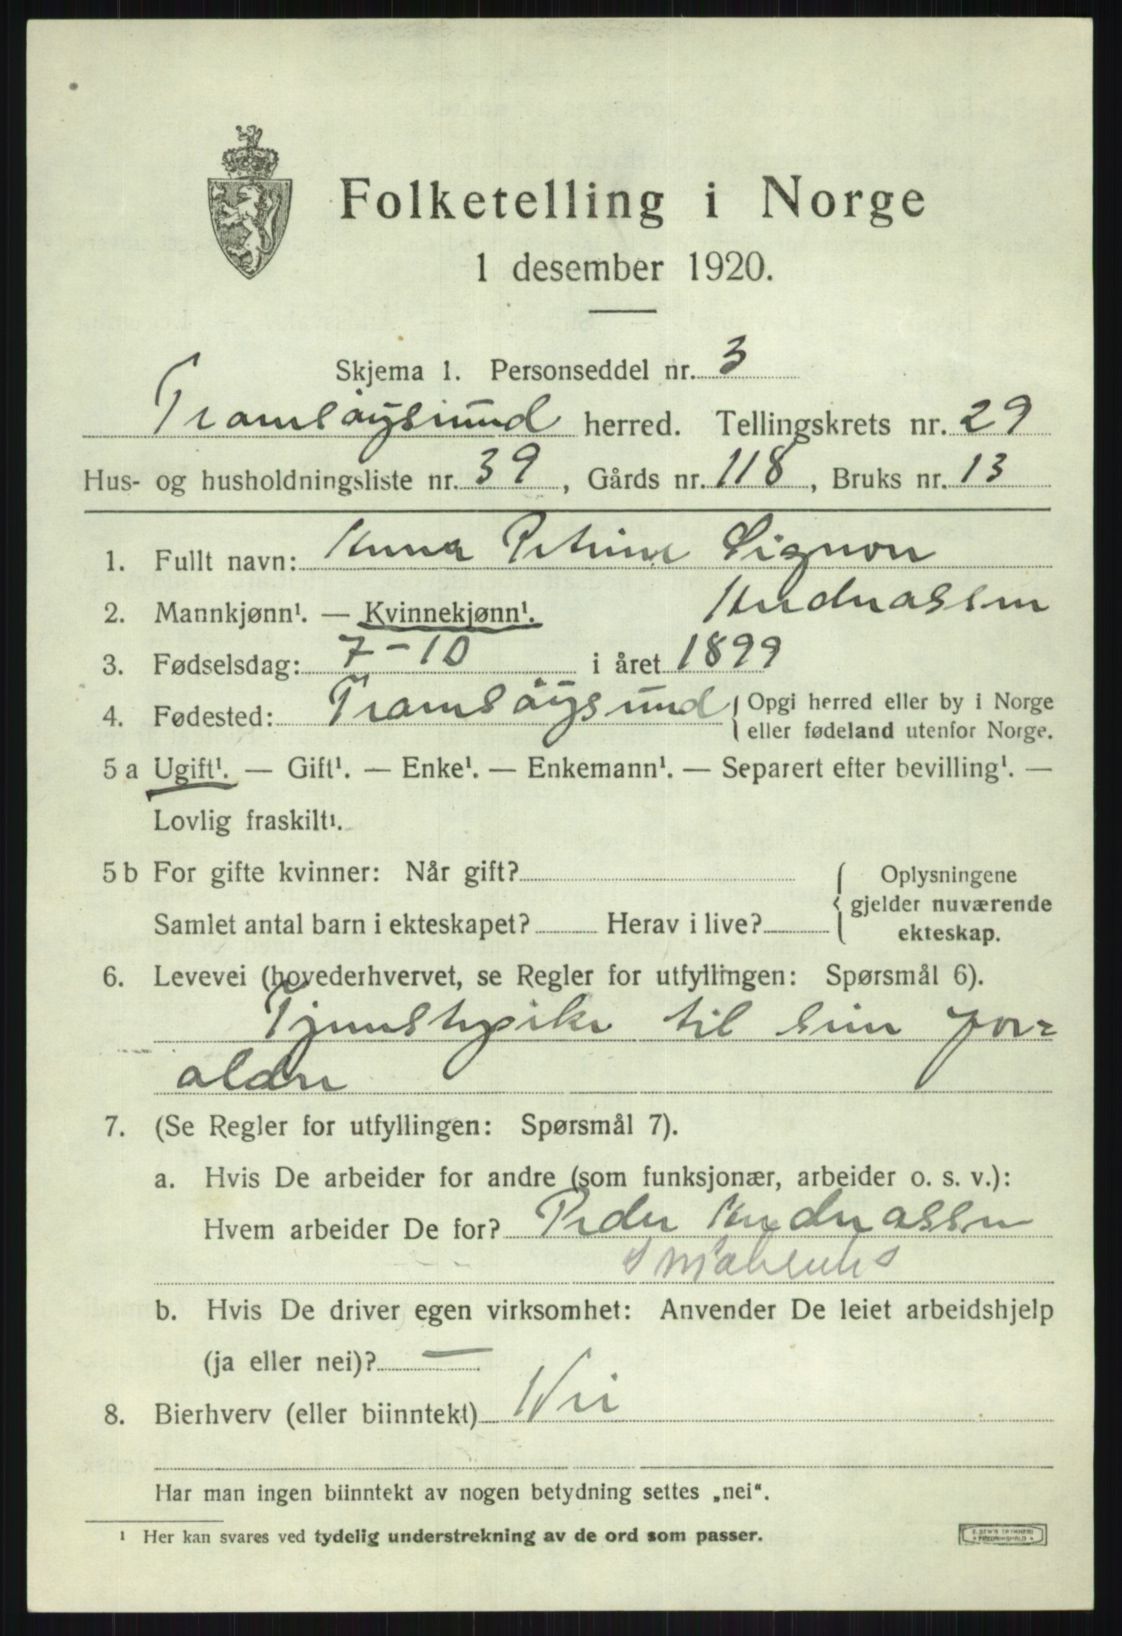 Folketelling i Norge
1 desember 1920.
Skjema 1. Personseddel nr. 3
Tromsøysund herred. Tellingskrets nr. 29
Hus- og husholdningsliste nr. 39, Gårds nr. 118, Bruks nr. 13
1. Fullt navn: Anna Petrine Signon
Andreassen
2. Mannkjønn¹. — Kvinnekjønn¹.
3. Fødselsdag: 7-10 i året 1899
4. Fødested: Tromsøysund { Opgi herred eller by i Norge
eller fødeland utenfor Norge.
5 a Ugift¹. — Gift¹. — Enke¹. — Enkemann¹. — Separert efter bevilling¹. —
Lovlig fraskilt¹.
5 b For gifte kvinner: Når gift?
Samlet antal barn i ekteskapet? Herav i live?
{ Oplysningene
gjelder nuværende
ekteskap.
6. Levevei (hovederhvervet, se Regler for utfyllingen: Spørsmål 6).
Tjenstepike til sine for-
aldre
7. (Se Regler for utfyllingen: Spørsmål 7).
a. Hvis De arbeider for andre (som funksjonær, arbeider o. s. v.):
Hvem arbeider De for? Peder Andreassen
b. Hvis De driver egen virksomhet: Anvender De leiet arbeidshjelp
(ja eller nei)? —
8. Bierhverv (eller biinntekt) Nei
Har man ingen biinntekt av nogen betydning settes „nei“.
¹ Her kan svares ved tydelig understrekning av de ord som passer.